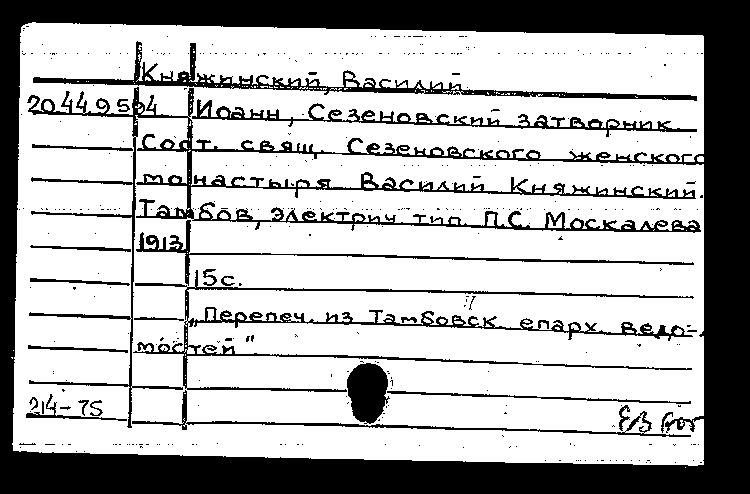 Княжинский, Василий
20.44.9.504 Иоанн, Сезеновский затворник.
Сост. свящ. Сезеновского женского
монастыря Василий Княжинский.
Тамбов, электрич. тип. П.С. Москалева
1913
15 с.
„Перепеч. из Тамбовск. епарх. ведо-
мостей"
214-75